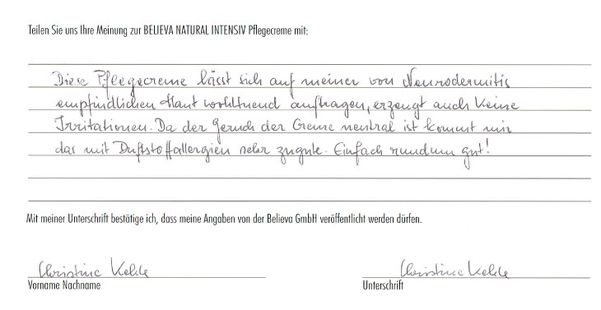 Teilen Sie uns Ihre Meinung zur BELIEVA NATURAL INTENSIV Pflegecreme mit:
Diese Pflegecreme lässt sich auf meiner von Neurodermitis
empfindlichen Haut wohltuend auftragen, erzeugt auch keine
Irritationen. Da der Geruch der Creme neutral ist kommt mir
das mit Duftstoffallergien sehr zugute. Einfach rundum gut!
Mit meiner Unterschrift bestätige ich, dass meine Angaben von der Believa GmbH veröffentlicht werden dürfen.
Christine Christine
Vorname Nachname Unterschrift